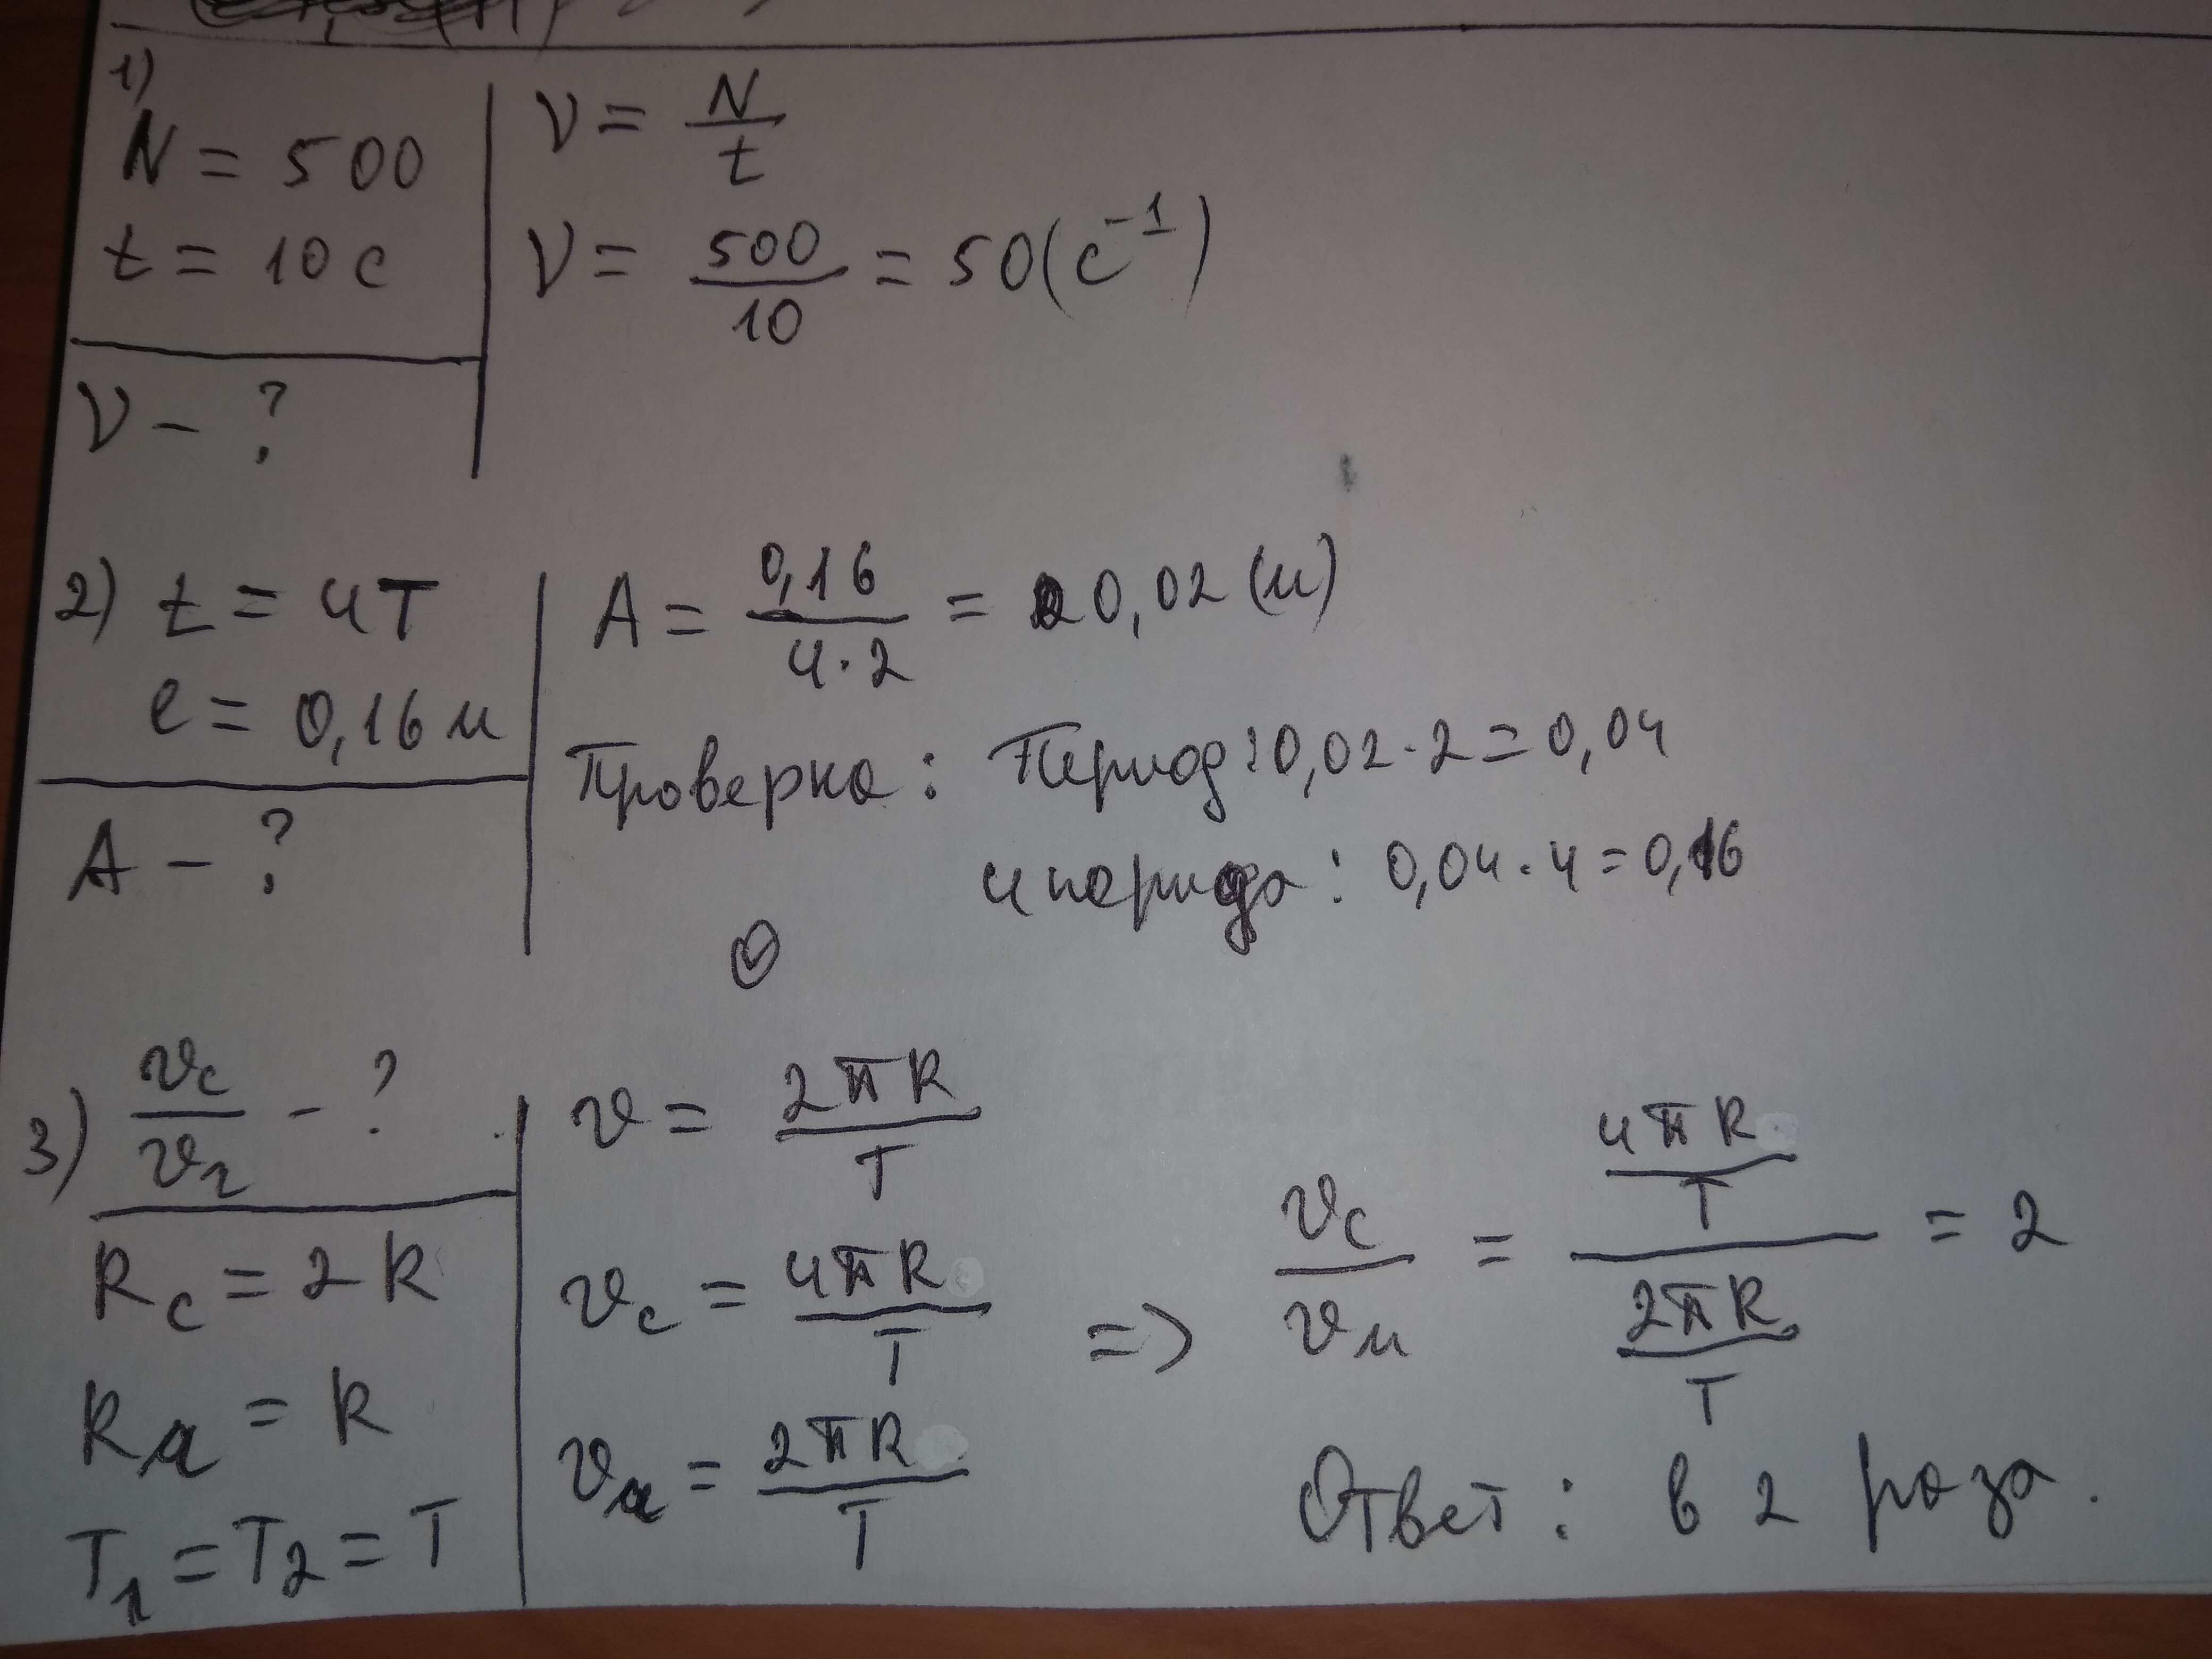 1)
N = 500
t = 10 с
ν - ?
ν = N/t
ν = 500/10 = 50 (с⁻¹)
2) t = 4T
l = 0,16 м
A - ?
A = 0,16/(4·2) = 0,02 (м)
Проверка: Период: 0,02·2 = 0,04
4 периода: 0,04·4 = 0,16
3) v_c/v_2 - ?
R_c = 2R
R_м = R
T₁ = T₂ = T
v = 2πR/T
v_c = 4πR/T
v_м = 2πR/T
=> v_c/v_м = (4πR/T)/(2πR/T) = 2
Ответ: в 2 раза.